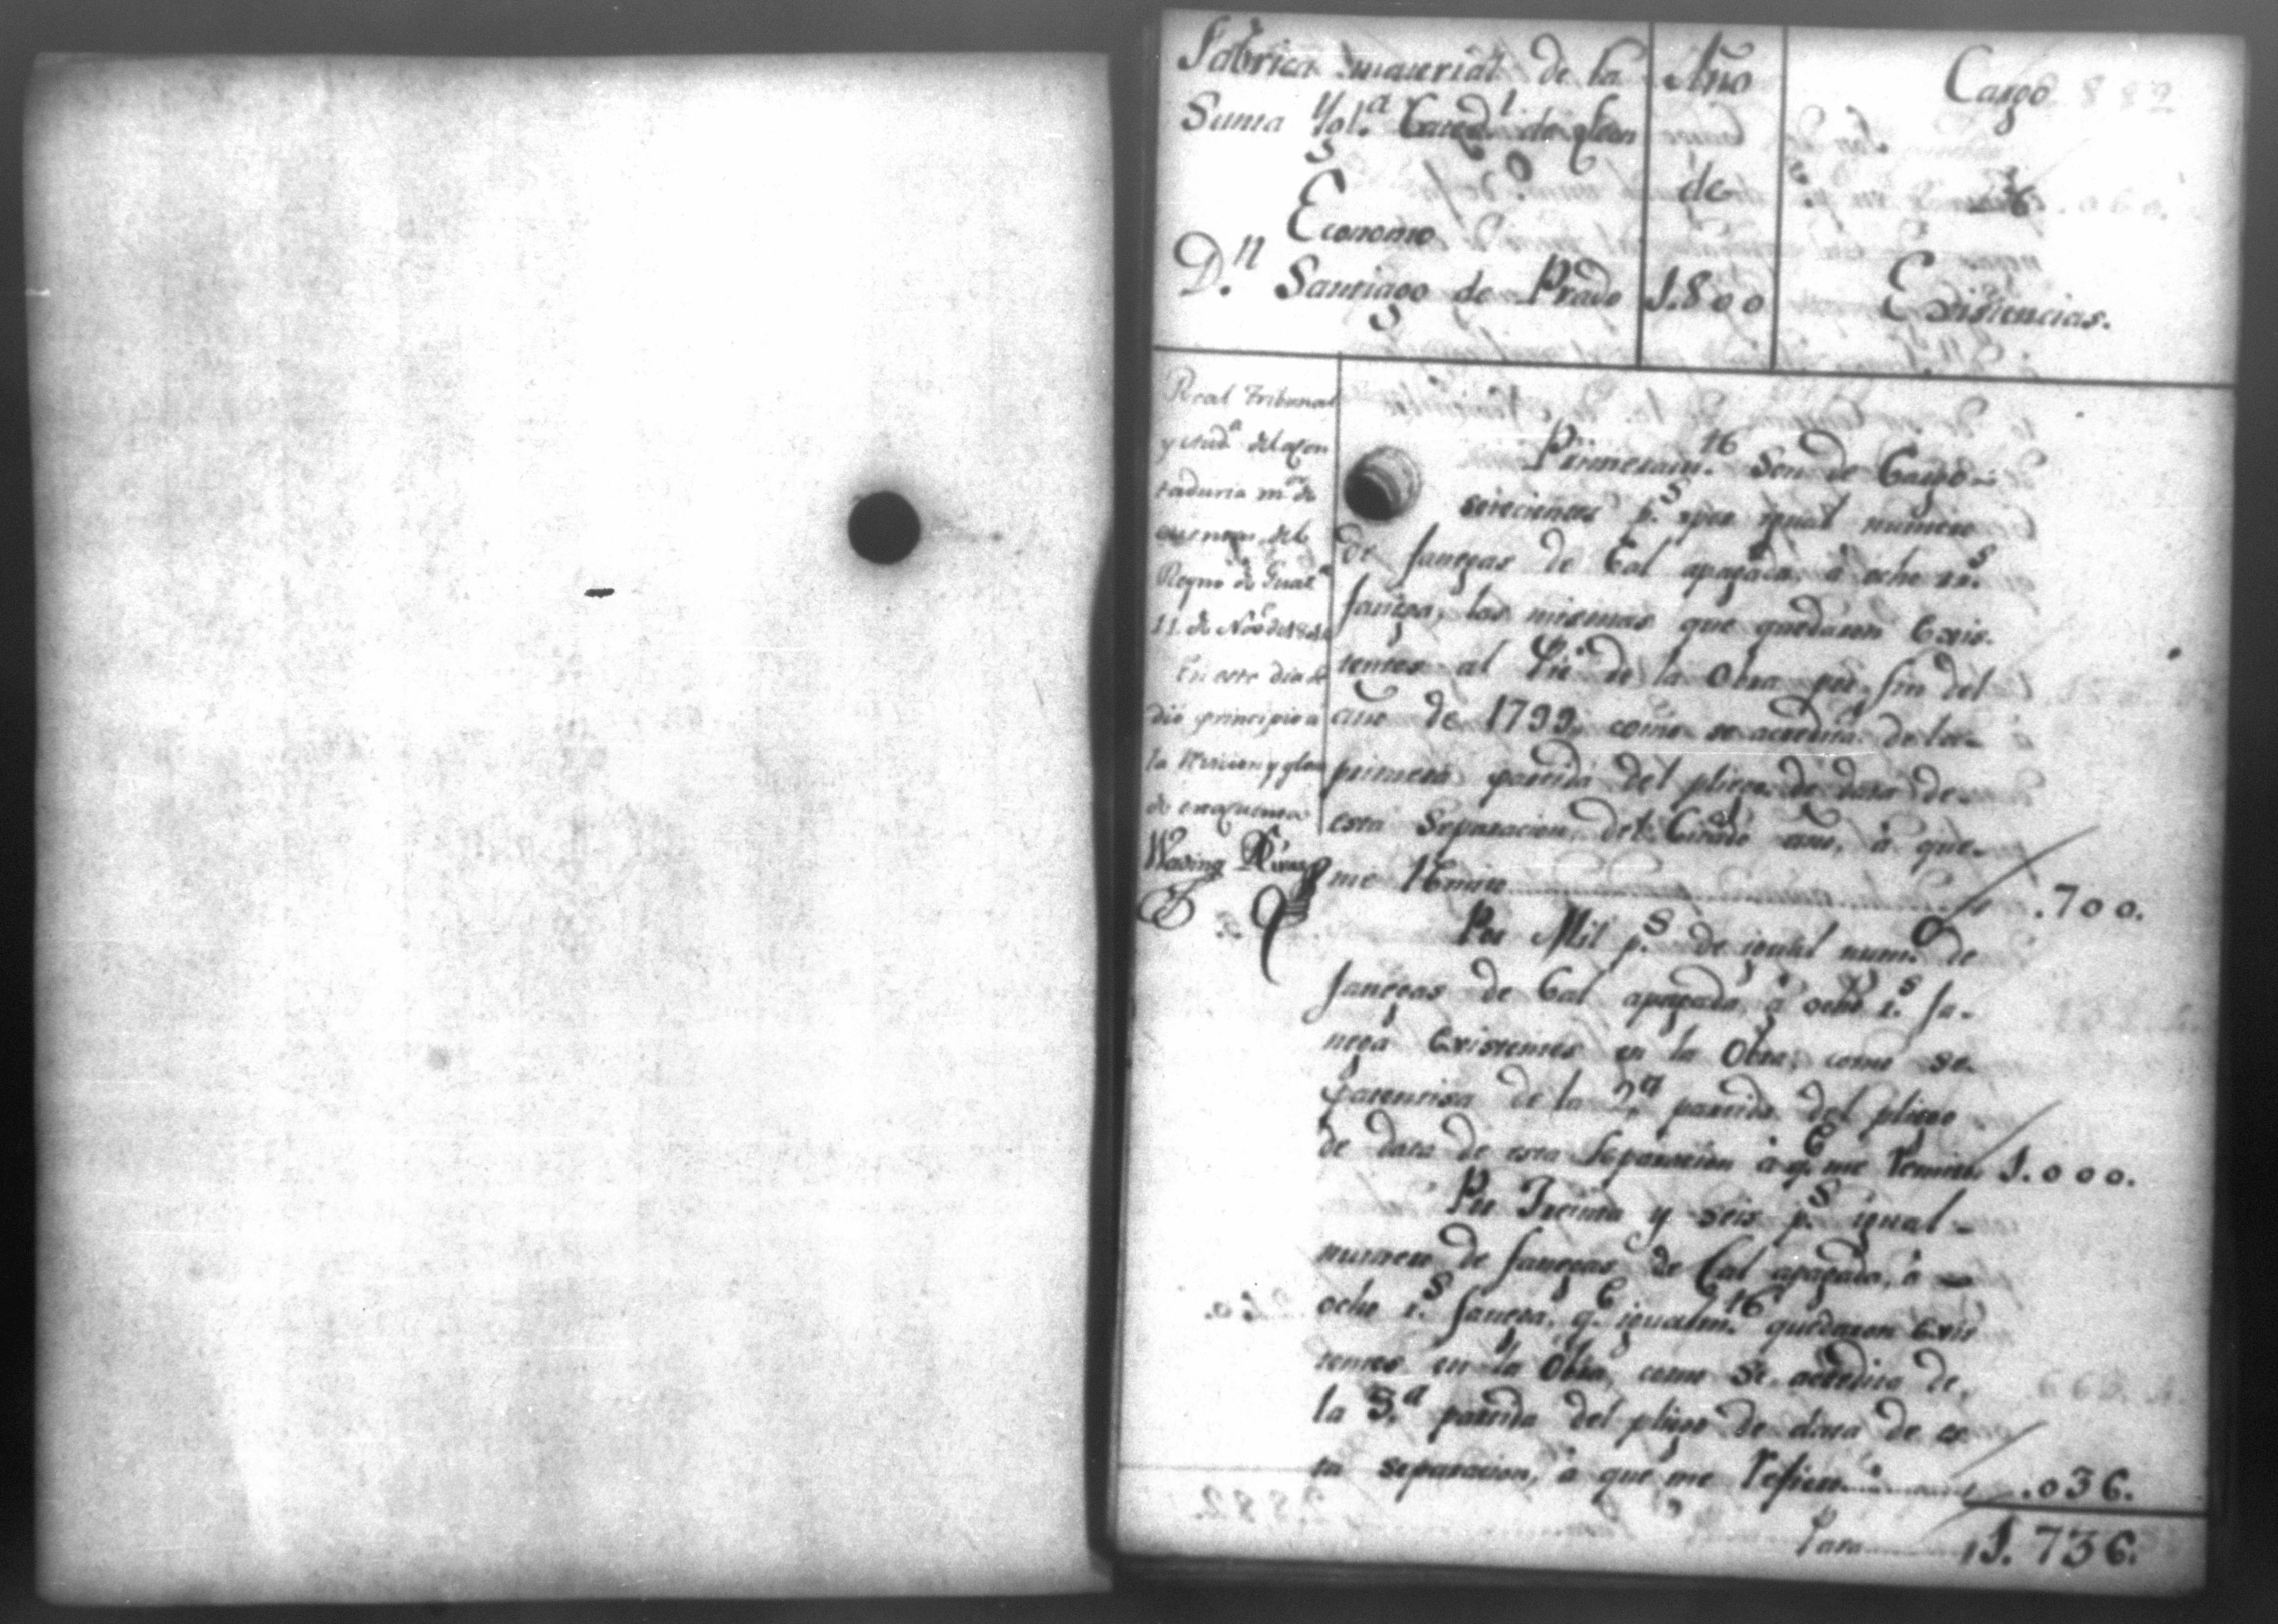 Fabrica material de la
Santa Ygl.ª Cated.l de Leon
Economo
D.n Santiago de Prado
Año
de
1.800
Cargo
de
Existencias.
Real Tribunal
y Aud.ª de la Con
taduria m.or de
cuentas del
Reyno de Guat.ª
11. de Nov.e de
En este dia se
dió principio a
la Revision y glosa
de esta cuenta
Primeram.te Son de Cargo
setecientos p.s por igual numero
de fanegas de Cal apagada, á ocho rr.s
fanega, las mismas que quedaron Exis-
tentes al Pie de la Obra por fin del
año de 1799, como se acredita de la
primera partida del pliego de data de
esta Separacion, del Citado año, á que
me Remito .700.
Por Mil p.s de igual num.o de
fanegas de Cal apagada, á ocho r.s fa-
nega Existentes en la Obra, como se
patentisa de la 2.ª partida del pliego
de data de esta Separacion á q.e me Remito 1.000.
Por Treinta y seis p.s igual
numero de fanegas de Cal apagada, á
ocho r.s fanega, q.e igualm.te quedaron Exis
tentes en la Obra, como se acredita de
la 3.ª partida del pliego de data de es
ta separacion, á que me Refiero .036.
Para 1.736.